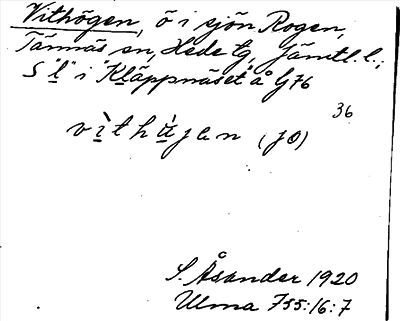 Vithögen, ö i sjön Rogen,
Tännäs sn, Hede tg, Jämtl. l.;
S "l" i "Kläppnäset" å Gj 76
36
vìthùjan (jö)
S. Åsander 1920
Ulma 755:16:7